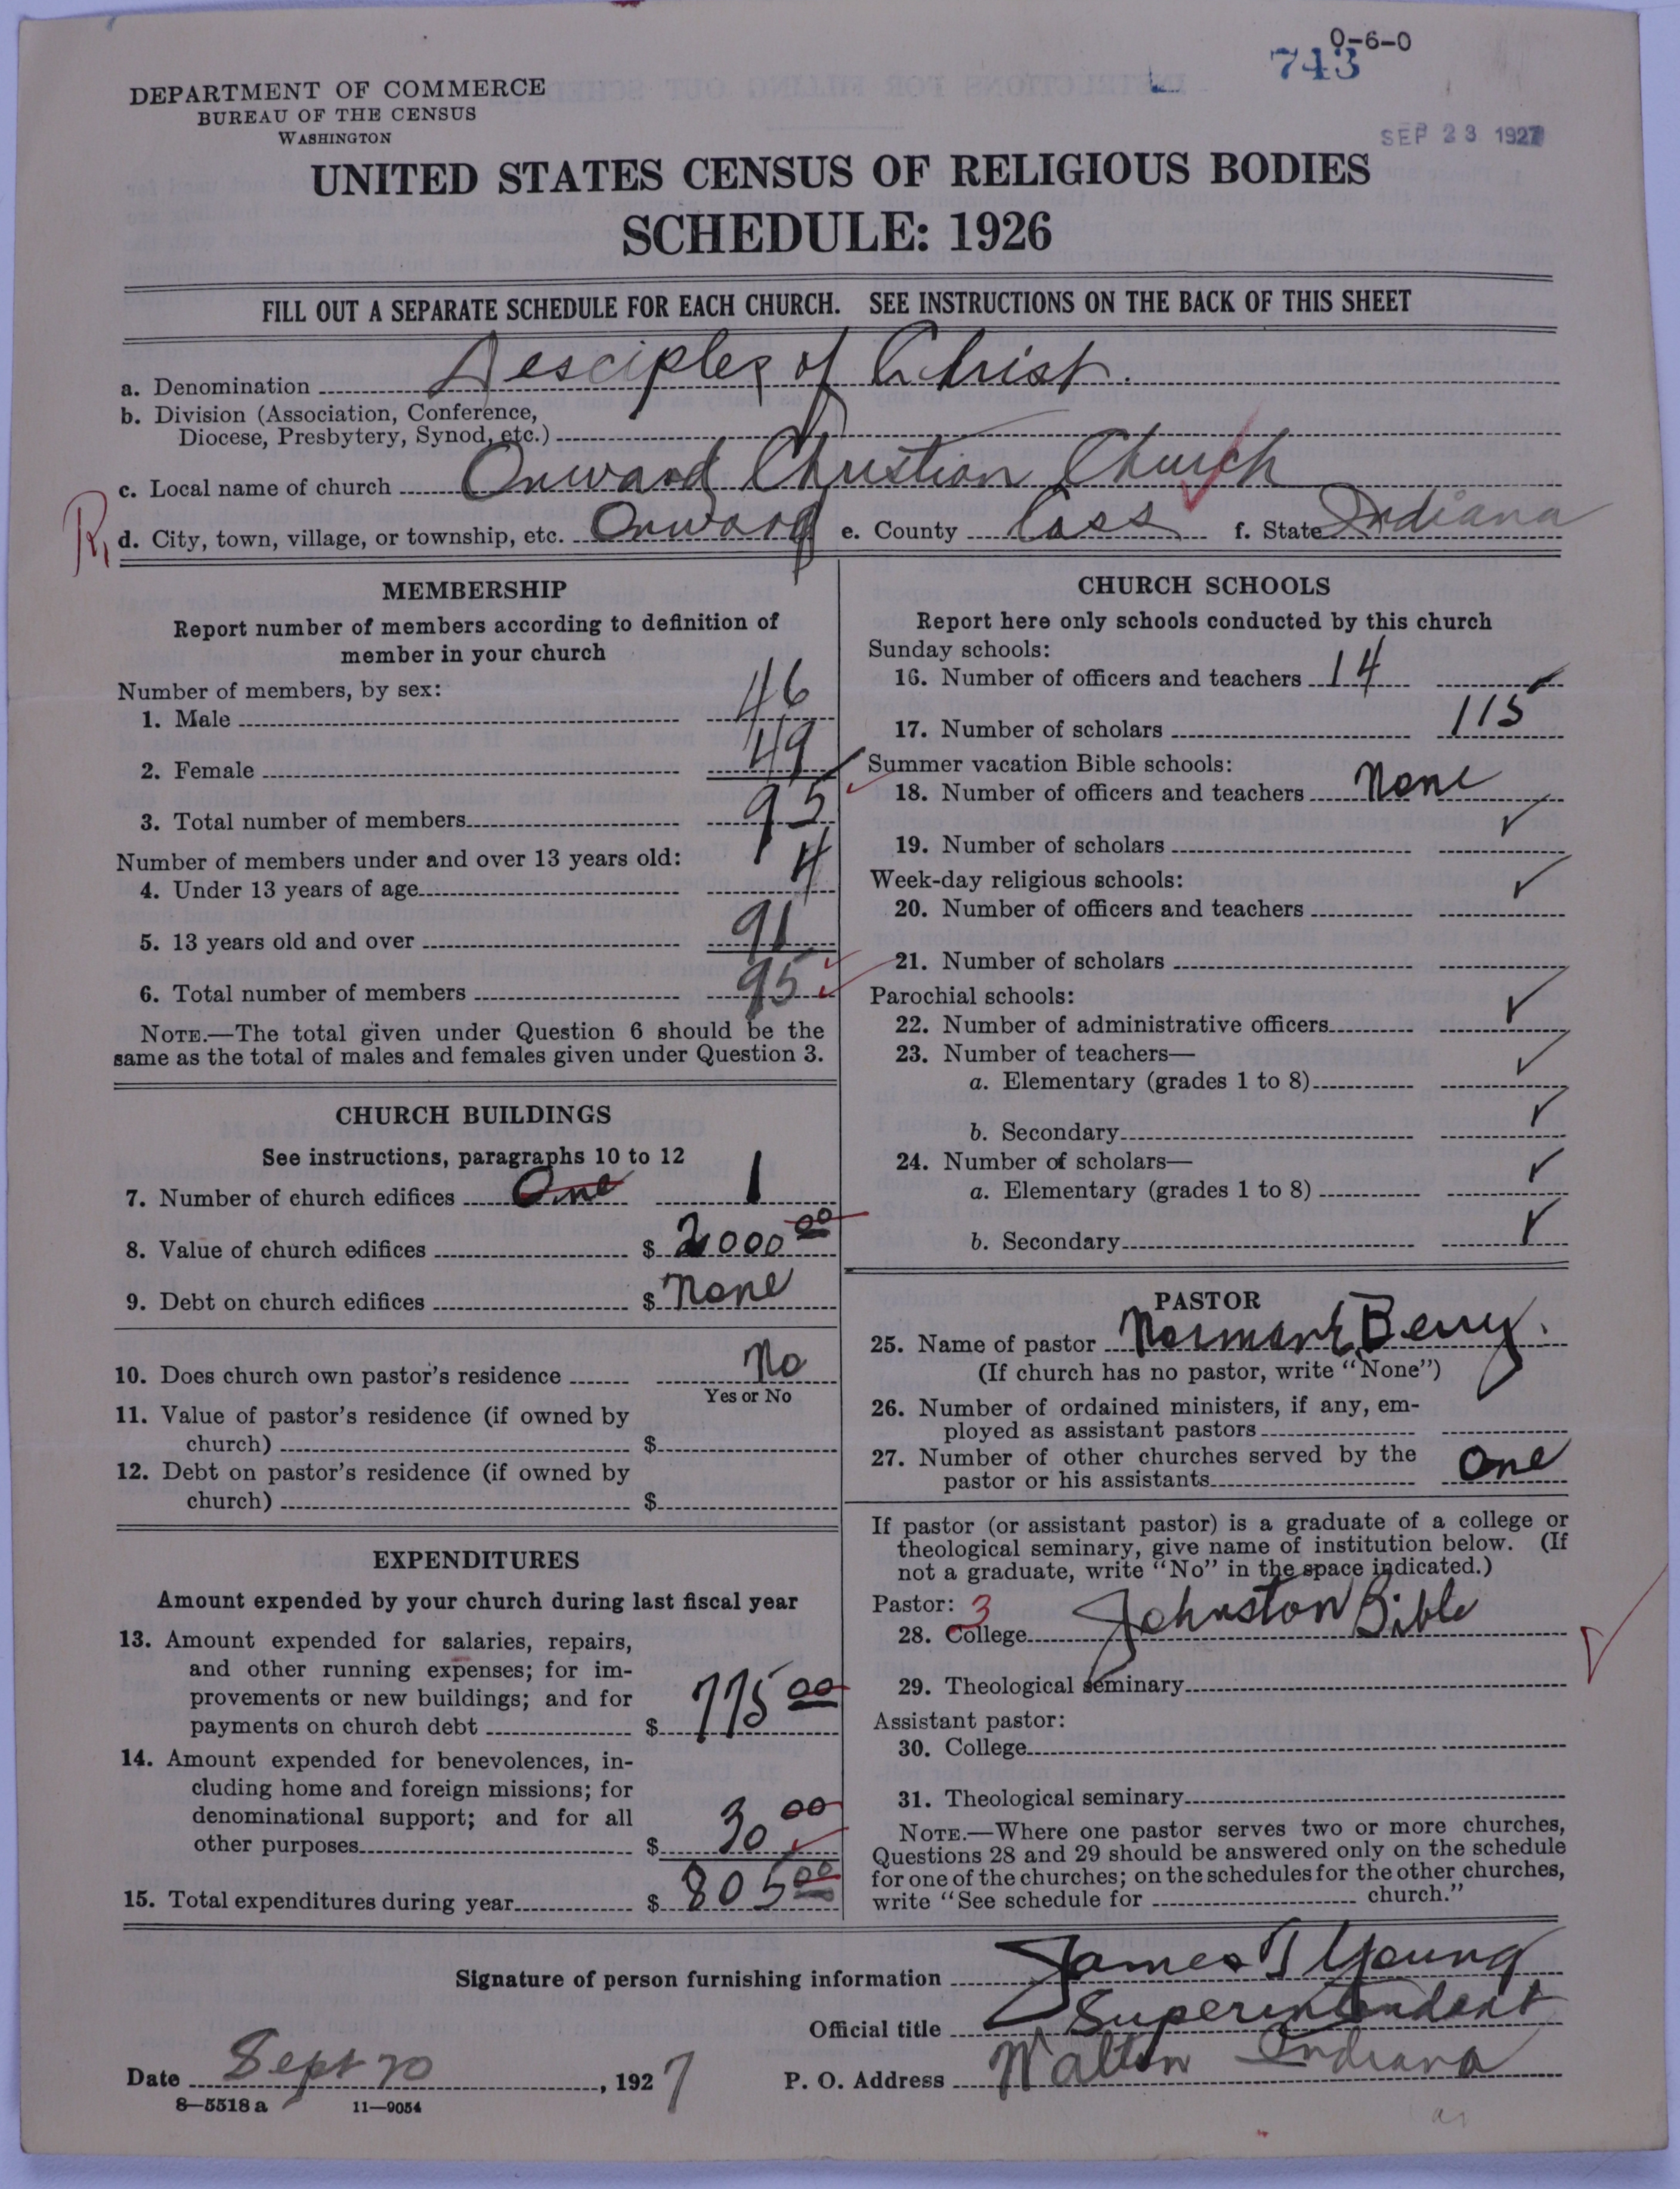 0-6-0
743
DEPARTMENT OF COMMERCE
BUREAU OF THE CENSUS
WASHINGTON
SEP 23 1927
UNITED STATES CENSUS OF RELIGIOUS BODIES
SCHEDULE: 1926
FILL OUT A SEPARATE SCHEDULE FOR EACH CHURCH. SEE INSTRUCTIONS ON THE BACK OF THIS SHEET
a. Denomination Desciples of Christ.
b. Division (Association, Conference,
Diocese, Presbytery, Synod, etc.)
c. Local name of church Onward Christian Church
d. City, town, village, or township, etc. Onward e. County Cass f. State Indiana
MEMBERSHIP
Report number of members according to definition of
member in your church
Number of members, by sex:
1. Male 46
2. Female 49
3. Total number of members 95
Number of members under and over 13 years old:
4. Under 13 years of age 4
5. 13 years old and over 91
6. Total number of members 95
NOTE.—The total given under Question 6 should be the
same as the total of males and females given under Question 3.
CHURCH BUILDINGS
See instructions, paragraphs 10 to 12
7. Number of church edifices One 1
8. Value of church edifices $ 2000 00
9. Debt on church edifices $ None
10. Does church own pastor's residence No
Yes or No
11. Value of pastor's residence (if owned by
church) $
12. Debt on pastor's residence (if owned by
church) $
EXPENDITURES
Amount expended by your church during last fiscal year
13. Amount expended for salaries, repairs,
and other running expenses; for im-
provements or new buildings; and for
payments on church debt $ 775 00
14. Amount expended for benevolences, in-
cluding home and foreign missions; for
denominational support; and for all
other purposes $ 30 00
15. Total expenditures during year $ 805 00
CHURCH SCHOOLS
Report here only schools conducted by this church
Sunday schools:
16. Number of officers and teachers 14
17. Number of scholars 115
Summer vacation Bible schools:
18. Number of officers and teachers None
19. Number of scholars
Week-day religious schools:
20. Number of officers and teachers
21. Number of scholars
Parochial schools:
22. Number of administrative officers
23. Number of teachers—
a. Elementary (grades 1 to 8)
b. Secondary
24. Number of scholars—
a. Elementary (grades 1 to 8)
b. Secondary
PASTOR
25. Name of pastor Norman E Berry.
(If church has no pastor, write "None")
26. Number of ordained ministers, if any, em-
ployed as assistant pastors
27. Number of other churches served by the
pastor or his assistants One
If pastor (or assistant pastor) is a graduate of a college or
theological seminary, give name of institution below. (If
not a graduate, write "No" in the space indicated.)
Pastor: 3
28. College Johnston Bible
29. Theological seminary
Assistant pastor:
30. College
31. Theological seminary
NOTE.—Where one pastor serves two or more churches,
Questions 28 and 29 should be answered only on the schedule
for one of the churches; on the schedules for the other churches,
write "See schedule for church."
Signature of person furnishing information James T Young
Official title Superintendent
Date Sept 20, 1927 P. O. Address Walton Indiana
8—5518 a 11—9054